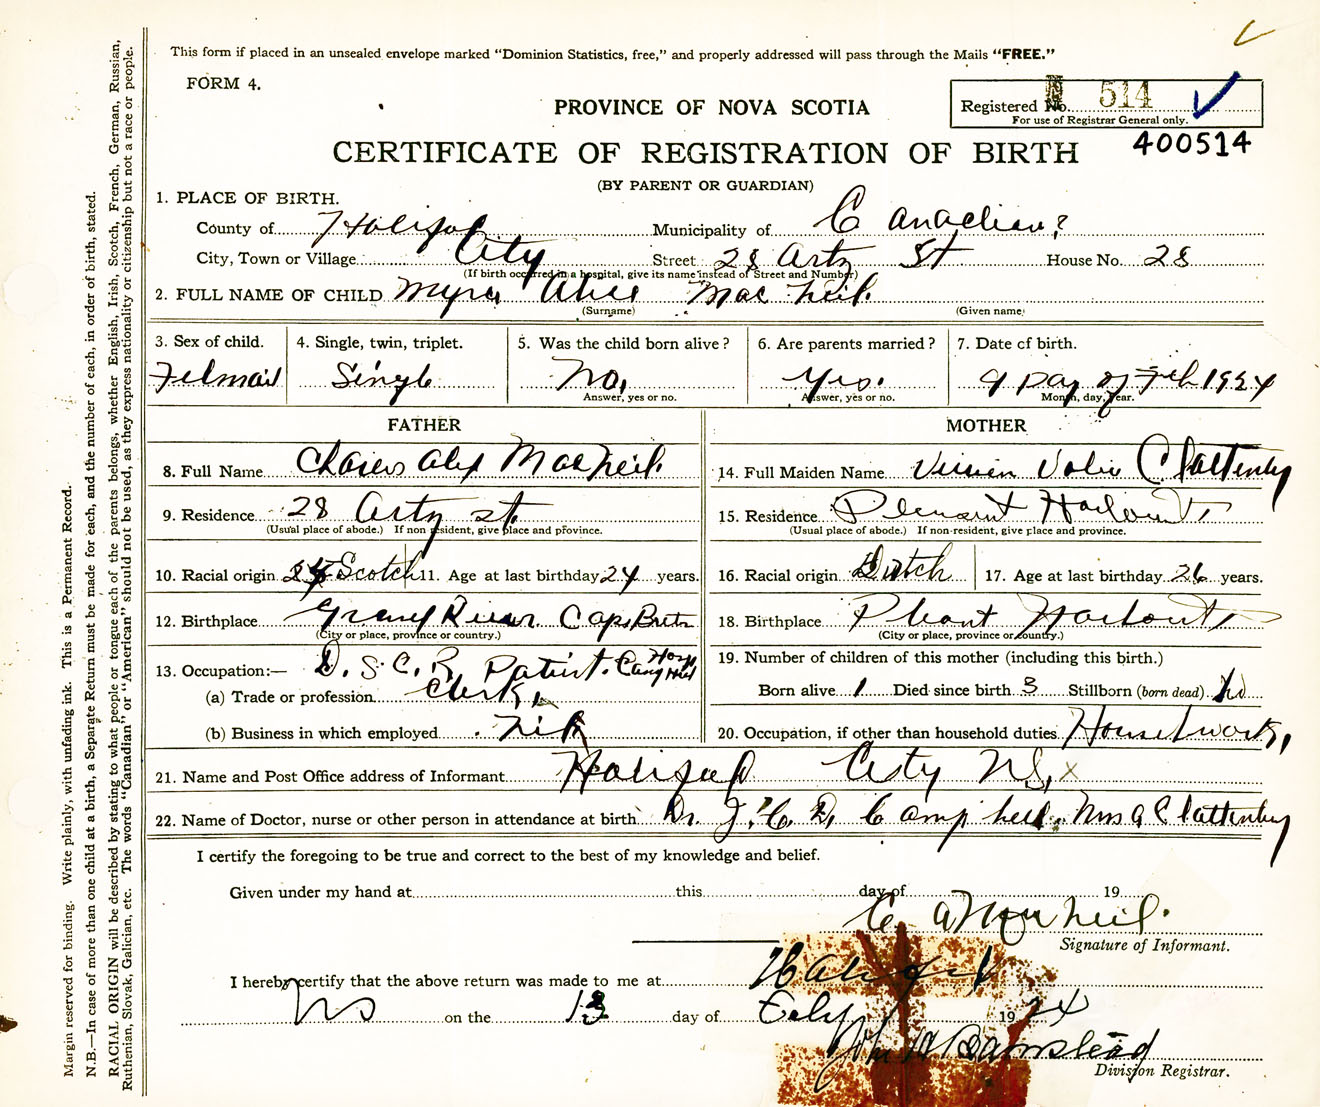 This form if placed in an unsealed envelope marked "Dominion Statistics, free," and properly addressed will pass through the Mails "FREE."
FORM 4.
PROVINCE OF NOVA SCOTIA
Registered No. 514
For use of Registrar General only.
400514
CERTIFICATE OF REGISTRATION OF BIRTH
(BY PARENT OR GUARDIAN)
1. PLACE OF BIRTH.
County of Halifax Municipality of Canadian?
City, Town or Village City Street 28 Artz St House No. 28
(If birth occurred in a hospital, give its name instead of Street and Number)
2. FULL NAME OF CHILD Myra Alice Mac Neil.
(Surname) (Given name)
3. Sex of child. 4. Single, twin, triplet. 5. Was the child born alive? 6. Are parents married? 7. Date of birth.
Felmail Single No, Yes. 9 Day of Feb 1924
Answer, yes or no. Answer, yes or no. Month, day, year.
FATHER
8. Full Name Charles Alex MacNeil.
9. Residence 28 Artz St.
(Usual place of abode.) If non resident, give place and province.
10. Racial origin Scotch 11. Age at last birthday 24 years.
12. Birthplace Grand River Cape Breton
(City or place, province or country.)
13. Occupation:— D.S.C.R. Patient. Camp Hill Hosp
(a) Trade or profession Clerk,
(b) Business in which employed
MOTHER
14. Full Maiden Name Clattenby
15. Residence Pleasant Harbour
(Usual place of abode.) If non-resident, give place and province.
16. Racial origin Dutch 17. Age at last birthday 26 years.
18. Birthplace Pleant Harbour
(City or place, province or country.)
19. Number of children of this mother (including this birth.)
Born alive 1 Died since birth 3 Stillborn (born dead)
20. Occupation, if other than household duties Housework,
21. Name and Post Office address of Informant Halifax City N.S, x
22. Name of Doctor, nurse or other person in attendance at birth Dr. Campbell. Mrs A Clattenby
I certify the foregoing to be true and correct to the best of my knowledge and belief.
Given under my hand at this day of 19
C A MacNeil.
Signature of Informant.
I hereby certify that the above return was made to me at Halifax
NS on the 13 day of Feby 1924
John H Barnstead
Division Registrar.
Margin reserved for binding. Write plainly, with unfading ink. This is a Permanent Record.
N.B.—In case of more than one child at a birth, a Separate Return must be made for each, and the number of each, in order of birth, stated.
RACIAL ORIGIN will be described by stating to what people or tongue each of the parents belongs, whether English, Irish, Scotch, French, German, Russian,
Ruthenian, Slovak, Galician, etc. The words "Canadian" or "American" should not be used, as they express nationality or citizenship but not a race or people.